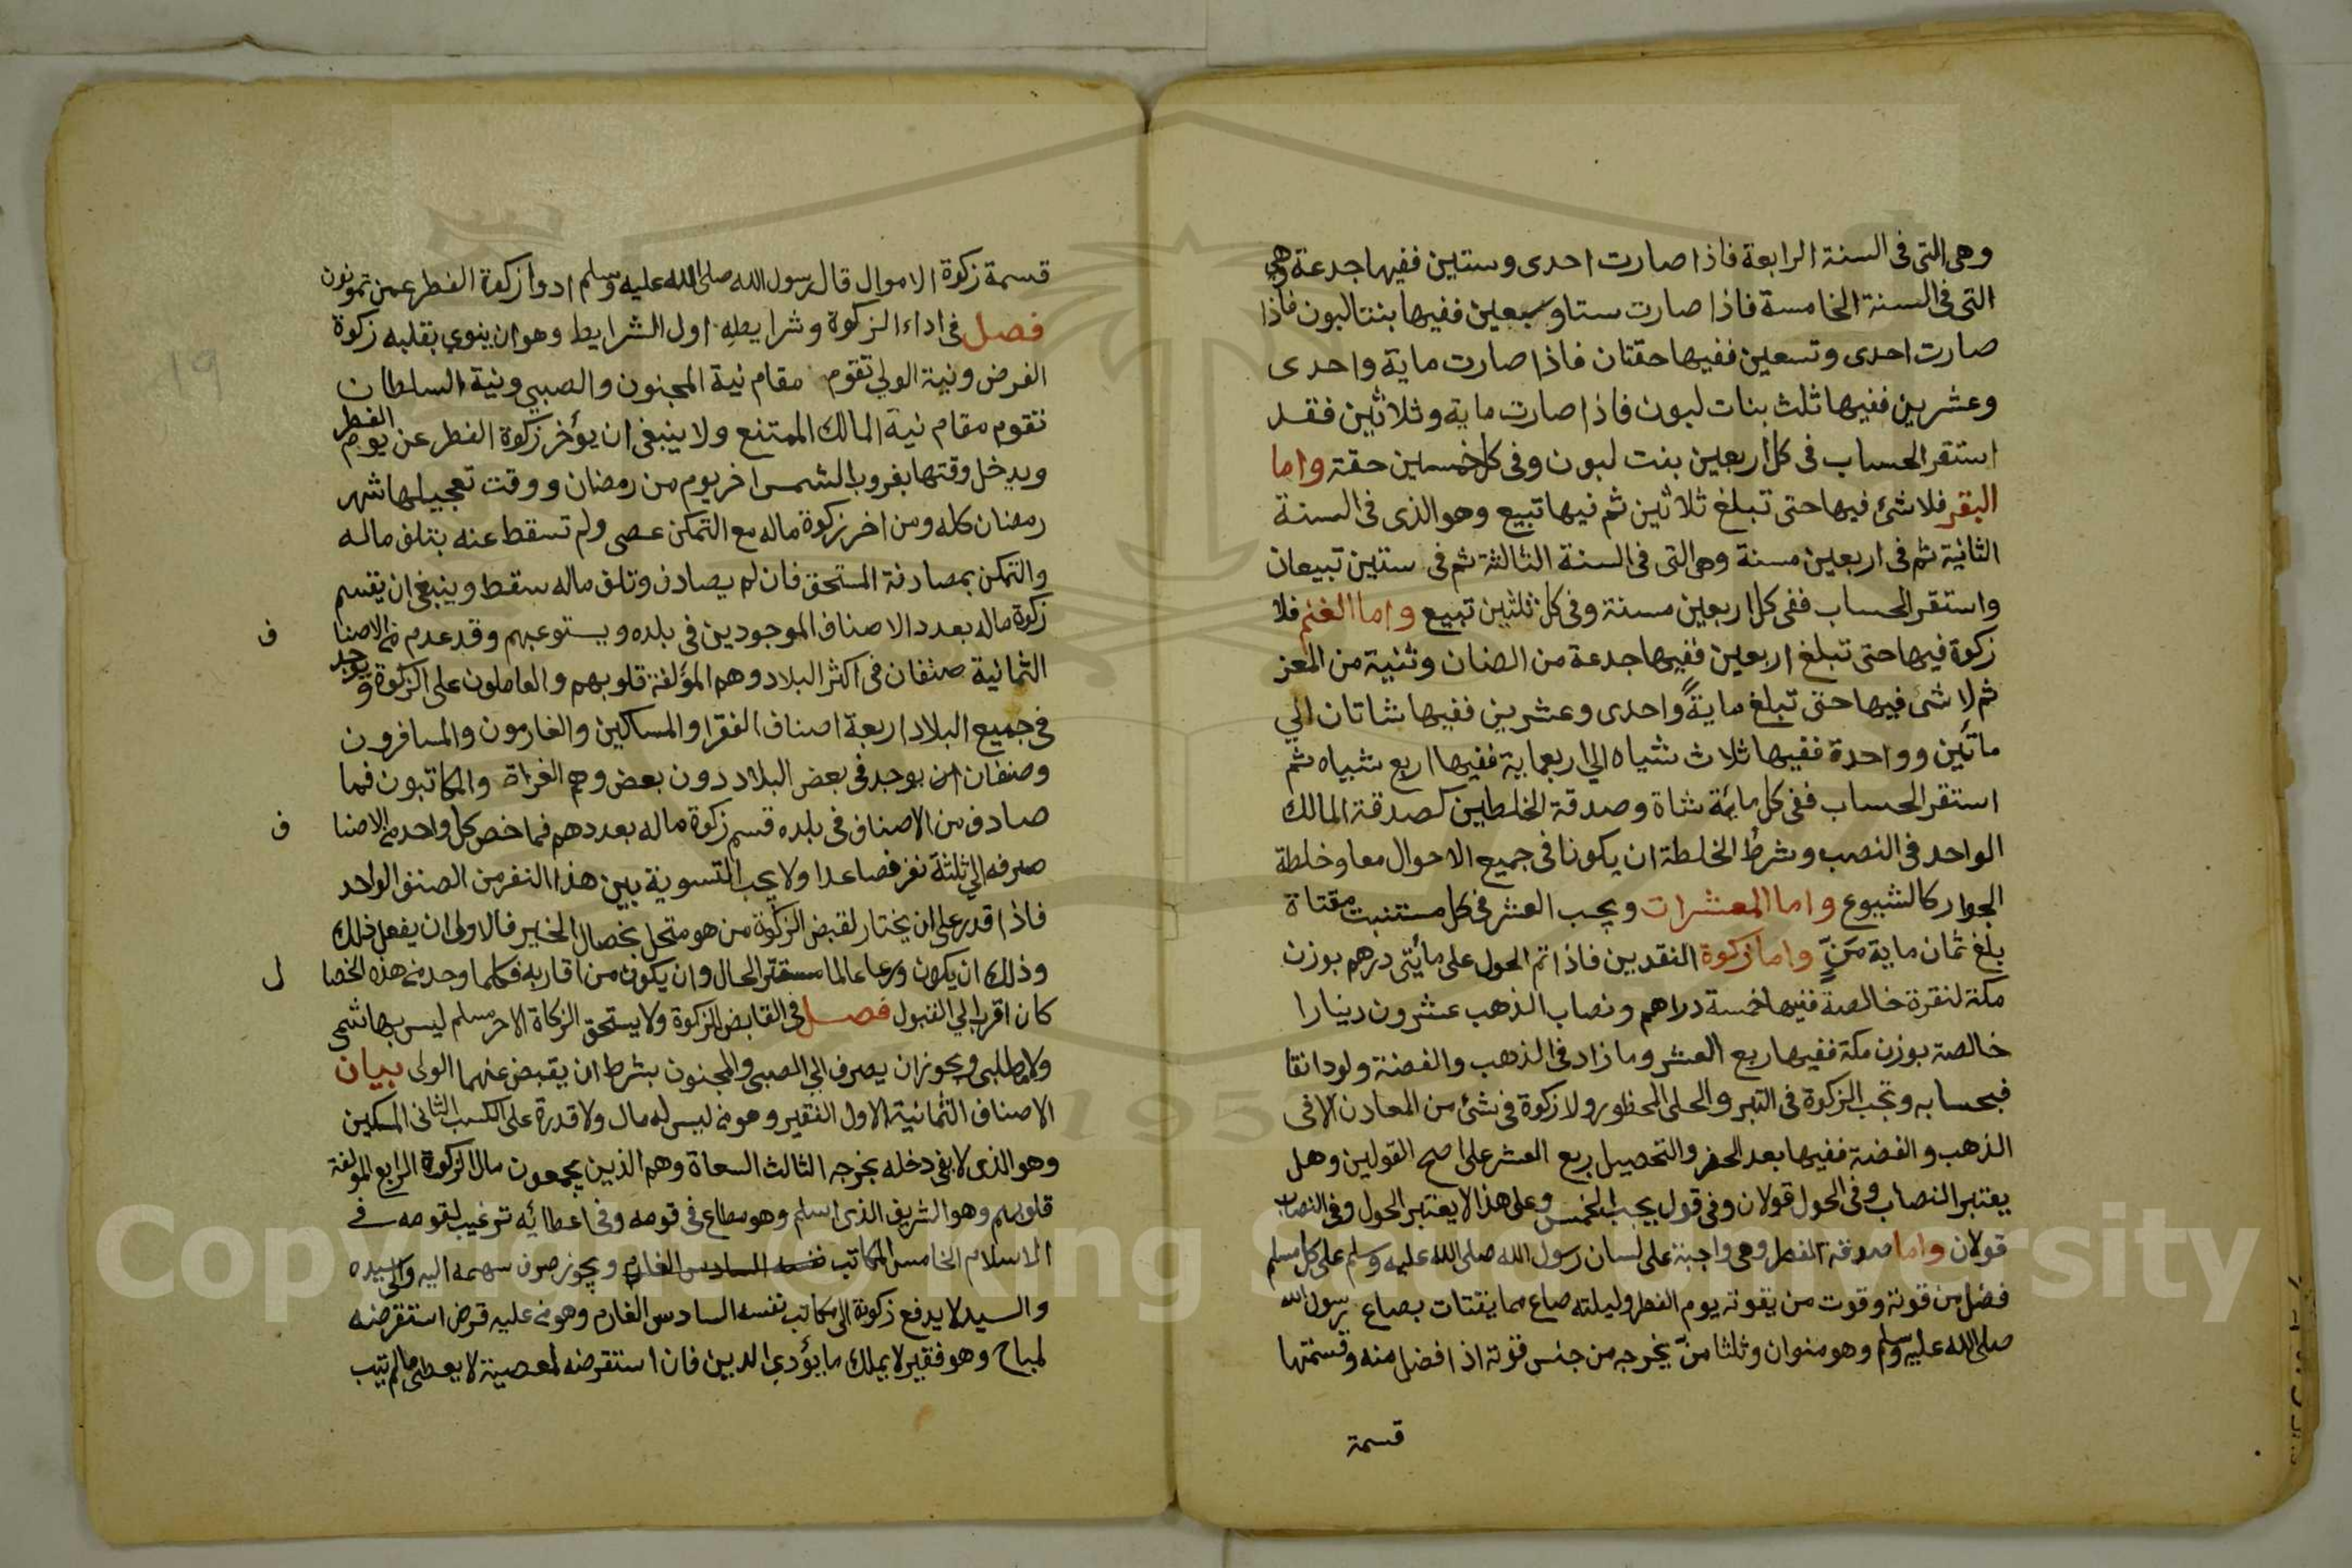 وهى التى فى السنة الرابعة فاذا صارت احدى وستين ففيها جدعة وهى
التى فى السنة الخامسة فاذا صارت ستا وسبعين ففيها بنتا لبون فاذا
صارت احدى وتسعين ففيها حقتان فاذا صارت ماية واحدى
وعشرين ففيها ثلث بنات لبون فاذا صارت ماية وثلاثين فقد
استقر الحساب فى كل اربعين بنت لبون وفى كل خمسين حقة واما
البقر فلا شئ فيها حتى تبلغ ثلاثين ثم فيها تبيع وهو الذى فى السنة
الثانية ثم فى اربعين مسنة وهى التى فى السنة الثالثة ثم فى ستين تبيعان
واستقر الحساب ففى كل اربعين مسنة وفى كل ثلثين تبيع واما الغنم فلا
زكوة فيها حتى تبلغ اربعين ففيها جدعة من الضان وثنية من المعز
ثم لا شئ فيها حتى تبلغ ماية واحدى وعشرين ففيها شاتان الي
مأتين وواحدة ففيها ثلاث شياه الي اربعماية ففيها اربع شياه ثم
استقر الحساب ففى كل مائة شاة وصدقة الخلطين كصدقة المالك
الواحد فى النصب وشرط الخلطة ان يكونا فى جميع الاحوال معا وخلطة
الجوار كالشيوع واما المعشرات ويجب العشر فى كل مستنبت مقتاة
بلغ ثمان ماية منّ واما زكوة النقدين فاذا تم الحول على مأيتى درهم بوزن
مكة لنقرة خالصة ففيها خمسة دراهم ونصاب الذهب عشرون دينارا
خالصة بوزن مكة ففيها ربع العشر وما زاد فى الذهب والفضة ولو دانقا
فبحسابه وتجب الزكوة فى التبر والحلى المحظور ولا زكوة فى شئ من المعادن الا فى
الذهب والفضة ففيها بعد الحفر والتحصيل ربع العشر على اصح القولين وهل
يعتبر النصاب وفى الحول قولان وفى قول يجب الخمس وعلى هذا لا يعتبر الحول وفى النصاب
قولان واما صدقة الفطر وهى واجبة على لسان رسول الله صلى الله عليه وسلم على كل مسلم
فضل من قوته وقوت من يقوته يوم الفطر وليلته صاع مما يقتات بصاع رسول الله
صلى الله عليه وسلم وهو منوان وثلثا منّ يخرجه من جنس قوته اذا فضل منه وقسمتها
قسمة
قسمة زكوة الاموال قال رسول الله صلى الله عليه وسلم ادوا زكوة الفطر عمن تمونون
فصل فى اداء الزكوة وشرايطه اول الشرايط وهو ان ينوي بقلبه زكوة
الفرض ونية الولي تقوم مقام نية المجنون والصبي ونية السلطان
تقوم مقام نية المالك الممتنع ولا ينبغى ان يؤخر زكوة الفطر عن يوم الفطر
ويدخل وقتها بغروب الشمس اخر يوم من رمضان ووقت تعجيلها شهر
رمضان كله ومن اخر زكوة ماله مع التمكن عصى ولم تسقط عنه بتلف ماله
والتمكن بمصادفة المستحق فان لم يصادف وتلف ماله سقط وينبغى ان يقسم
زكوة ماله بعدد الاصناف الموجودين فى بلده ويستوعبهم وقد عدم من الاصنا ف
الثمانية صنفان فى اكثر البلاد وهم المؤلفة قلوبهم والعاملون على الزكوة ويوجد
فى جميع البلاد اربعة اصناف الفقرا والمساكين والغارمون والمسافرون
وصنفان يوجد فى بعض البلاد دون بعض وهم الغزاة والمكاتبون فما
صادف من الاصناف فى بلده قسم زكوة ماله بعددهم فما خص كل واحد من الاصنا ف
صرفه الي ثلثة نفر فصاعدا ولا يجب التسوية بين هذا النفر من الصنف الواحد
فاذا قدر على ان يختار لقبض الزكوة من هو متحل بخصال الخير فالاولى ان يفعل ذلك
وذلك ان يكون ورعا عالما مستتر الحال وان يكون من اقاربه فكلما وجد من هذه الخصا ل
كان اقرب الي القبول فصل فى القابض الزكوة ولا يستحق الزكاة الا حر مسلم ليس بهاشمى
ولا مطلبى ويجوز ان يصرف الي الصبى والمجنون بشرط ان يقبض عنهما الولى بيان
الاصناف الثمانية الاول الفقير وهو من ليس له مال ولا قدرة على الكسب الثانى المسكين
وهو الذى لا يفى دخله بخرجه الثالث السعاة وهم الذين يجمعون مال الزكوة الرابع المولفة
قلوبهم وهو الشريف الذى اسلم وهو مطاع فى قومه وفى اعطائه ترغيب لقومه فى
الاسلام الخامس المكاتب نفسه السادس الغارم ويجوز صرف سهمه اليه والى سيده
والسيد لا يدفع زكوته الى مكاتب نفسه السادس الغارم وهو من عليه قرض استقرضه
لمباح وهو فقير لا يملك ما يؤدي الدين فان استقرضه لمعصية لا يعطى ما لم يتب
19
Copyright © King Saud University
1957